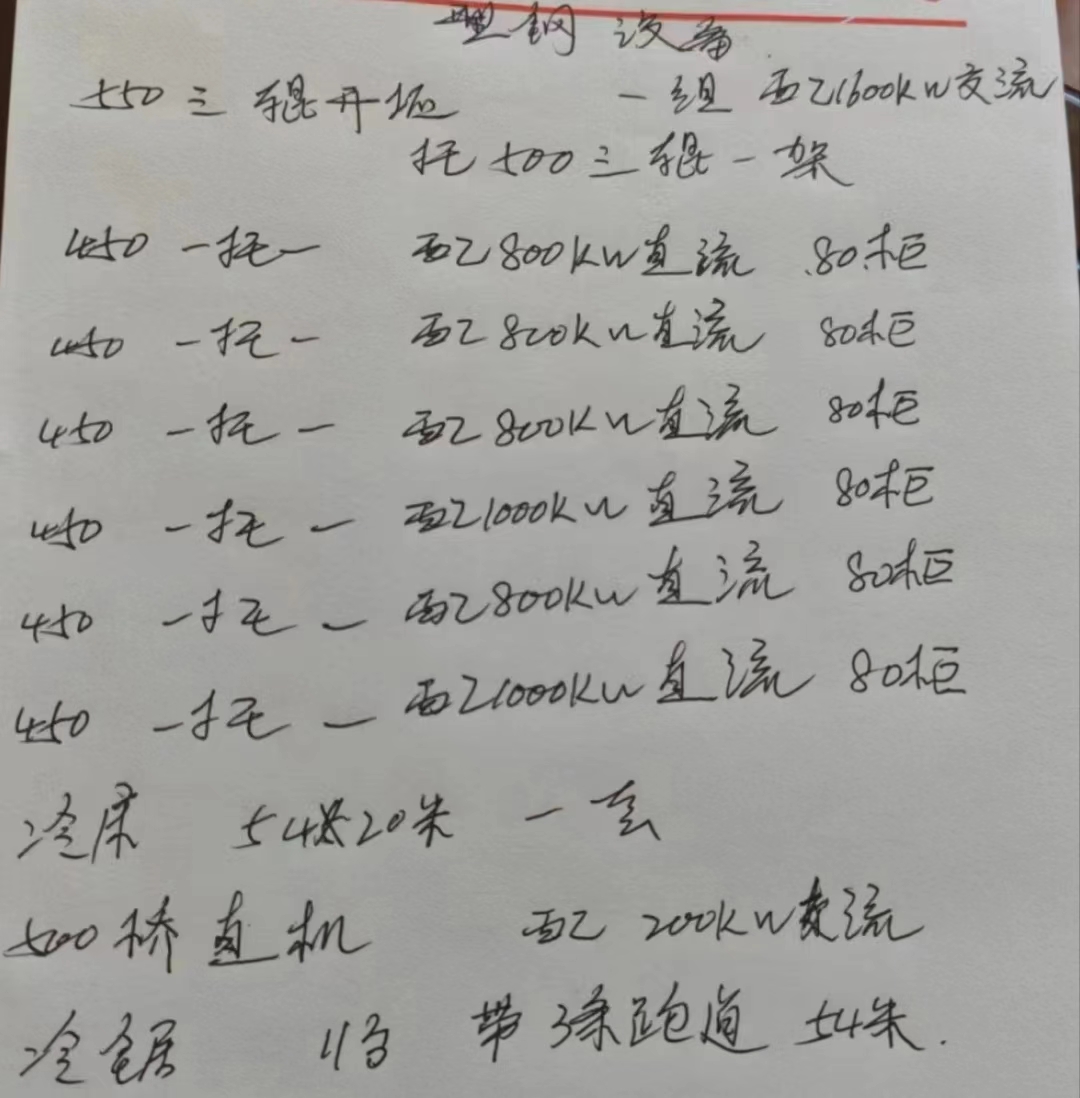 型钢设备
550三辊开坯 一组 配1600kw交流
托500三辊一架
450 一托一 配800kw直流 80柜
450 一托一 配800kw直流 80柜
450 一托一 配800kw直流 80柜
450 一托一 配1000kw直流 80柜
450 一托一 配800kw直流 80柜
450 一托一 配1000kw直流 80柜
冷床 54米20米 一套
500桥直机 配 200kw直流
冷锯 11台 带3条跑道 54米.